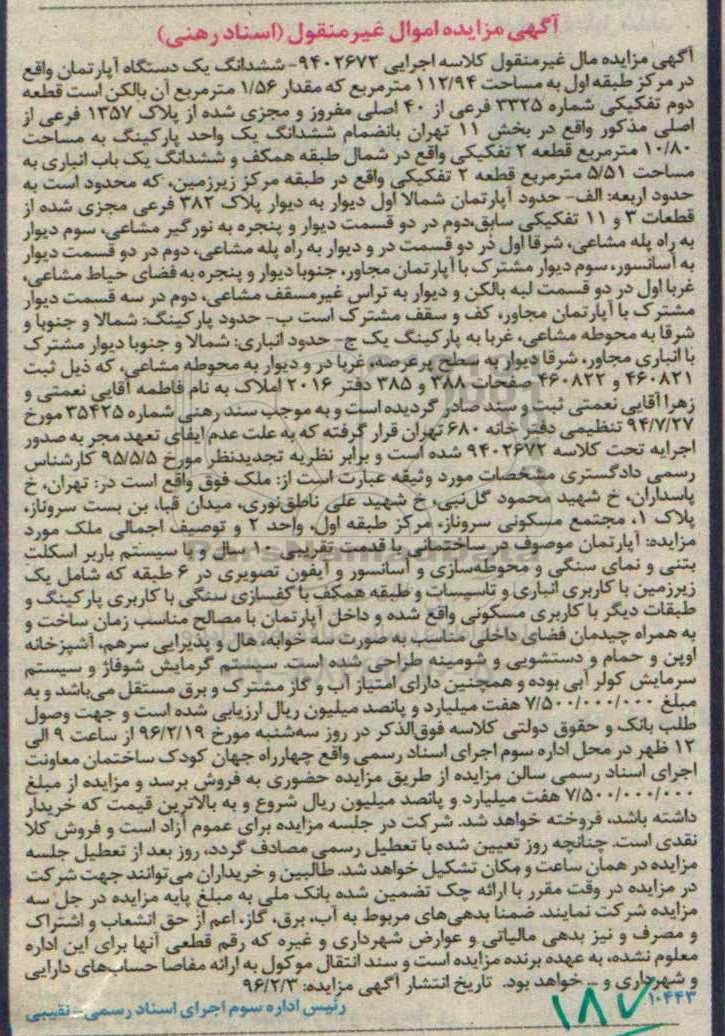 آگهی مزایده اموال غیرمنقول (اسناد رهنی)
آگهی مزایده مال غیرمنقول کلاسه اجرایی ۹۴۰۲۶۷۲- ششدانگ یک دستگاه آپارتمان واقع
در مرکز طبقه اول به مساحت ۱۱۲/۹۴ مترمربع که مقدار ۱/۵۶ مترمربع آن بالکن است قطعه
دوم تفکیکی شماره ۳۳۲۵ فرعی از ۴۰ اصلی مفروز و مجزی شده از پلاک ۱۳۵۷ فرعی از
اصلی مذکور واقع در بخش ۱۱ تهران بانضمام ششدانگ یک واحد پارکینگ به مساحت
۱۰/۸۰ مترمربع قطعه ۲ تفکیکی واقع در شمال طبقه همکف و ششدانگ یک باب انباری به
مساحت ۵/۵۱ مترمربع قطعه ۲ تفکیکی واقع در طبقه مرکز زیرزمین، که محدود است به
حدود اربعه: الف- حدود آپارتمان شمالا اول دیوار به دیوار پلاک ۳۸۲ فرعی مجزی شده از
قطعات ۳ و ۱۱ تفکیکی سابق،دوم در دو قسمت دیوار و پنجره به نورگیر مشاعی، سوم دیوار
به راه پله مشاعی، شرقا اول در دو قسمت در و دیوار به راه پله مشاعی، دوم در دو قسمت دیوار
به آسانسور، سوم دیوار مشترک با آپارتمان مجاور، جنوبا دیوار و پنجره به فضای حیاط مشاعی،
غربا اول در دو قسمت لبه بالکن و دیوار به تراس غیرمسقف مشاعی، دوم در سه قسمت دیوار
مشترک با آپارتمان مجاور، کف و سقف مشترک است ب- حدود پارکینگ: شمالا و جنوبا و
شرقا به محوطه مشاعی، غربا به پارکینگ یک ج- حدود انباری: شمالا و جنوبا دیوار مشترک
با انباری مجاور، شرقا دیوار به سطح پرعرصه، غربا در و دیوار به محوطه مشاعی، که ذیل ثبت
۴۶۰۸۲۱ و ۴۶۰۸۲۲ صفحات ۳۸۸ و ۳۸۵ دفتر ۲۰۱۶ املاک به نام فاطمه آقایی نعمتی و
زهرا آقایی نعمتی ثبت و سند صادر گردیده است و به موجب سند رهنی شماره ۳۵۴۲۵ مورخ
۹۴/۷/۲۷ تنظیمی دفتر خانه ۶۸۰ تهران قرار گرفته که به علت عدم ایفای تعهد مجر به صدور
اجراییه تحت کلاسه ۹۴۰۲۶۷۲ شده است و برابر نظریه تجدیدنظر مورخ ۹۵/۵/۵ کارشناس
رسمی دادگستری مشخصات مورد وثیقه عبارت است از: ملک فوق واقع است در: تهران، خ
پاسداران، خ شهید محمود گل‌نبی، خ شهید علی ناطق‌نوری، میدان قبا، بن بست سروناز،
پلاک ۱، مجتمع مسکونی سروناز، مرکز طبقه اول، واحد ۲ و توصیف اجمالی ملک مورد
مزایده: آپارتمان موصوف در ساختمانی با قدمت تقریبی ۱۰ سال و با سیستم باربر اسکلت
بتنی و نمای سنگی و محوطه‌سازی و آسانسور و آیفون تصویری در ۶ طبقه که شامل یک
زیرزمین با کاربری انباری و تاسیسات و طبقه همکف با کفسازی سنگی با کاربری پارکینگ و
طبقات دیگر با کاربری مسکونی واقع شده و داخل آپارتمان با مصالح مناسب زمان ساخت و
به همراه چیدمان فضای داخلی مناسب به صورت سه خوابه، هال و پذیرایی سرهم، آشپزخانه
اوپن و حمام و دستشویی و شومینه طراحی شده است. سیستم گرمایش شوفاژ و سیستم
سرمایش کولر آبی بوده و همچنین دارای امتیاز آب و گاز مشترک و برق مستقل می‌باشد و به
مبلغ ۷/۵۰۰/۰۰۰/۰۰۰ هفت میلیارد و پانصد میلیون ریال ارزیابی شده است و جهت وصول
طلب بانک و حقوق دولتی کلاسه فوق‌الذکر در روز سه‌شنبه مورخ ۹۶/۲/۱۹ از ساعت ۹ الی
۱۲ ظهر در محل اداره سوم اجرای اسناد رسمی واقع چهارراه جهان کودک ساختمان معاونت
اجرای اسناد رسمی سالن مزایده از طریق مزایده حضوری به فروش برسد و مزایده از مبلغ
۷/۵۰۰/۰۰۰/۰۰۰ هفت میلیارد و پانصد میلیون ریال شروع و به بالاترین قیمت که خریدار
داشته باشد، فروخته خواهد شد. شرکت در جلسه مزایده برای عموم آزاد است و فروش کلا
نقدی است. چنانچه روز تعیین شده با تعطیل رسمی مصادف گردد، روز بعد از تعطیل جلسه
مزایده در همان ساعت و مکان تشکیل خواهد شد. طالبین و خریداران می‌توانند جهت شرکت
در مزایده در وقت مقرر با ارائه چک تضمین شده بانک ملی به مبلغ پایه مزایده در جل سه
مزایده شرکت نمایند. ضمنا بدهی‌های مربوط به آب، برق، گاز، اعم از حق انشعاب و اشتراک
و مصرف و نیز بدهی مالیاتی و عوارض شهرداری و غیره که رقم قطعی آنها برای این اداره
معلوم نشده، به عهده برنده مزایده است و سند انتقال موکول به ارائه مفاصا حساب‌های دارایی
و شهرداری و ... خواهد بود. تاریخ انتشار آگهی مزایده: ۹۶/۲/۳
۱۰۴۴۳ رئیس اداره سوم اجرای اسناد رسمی- نقیبی
۱۸۷